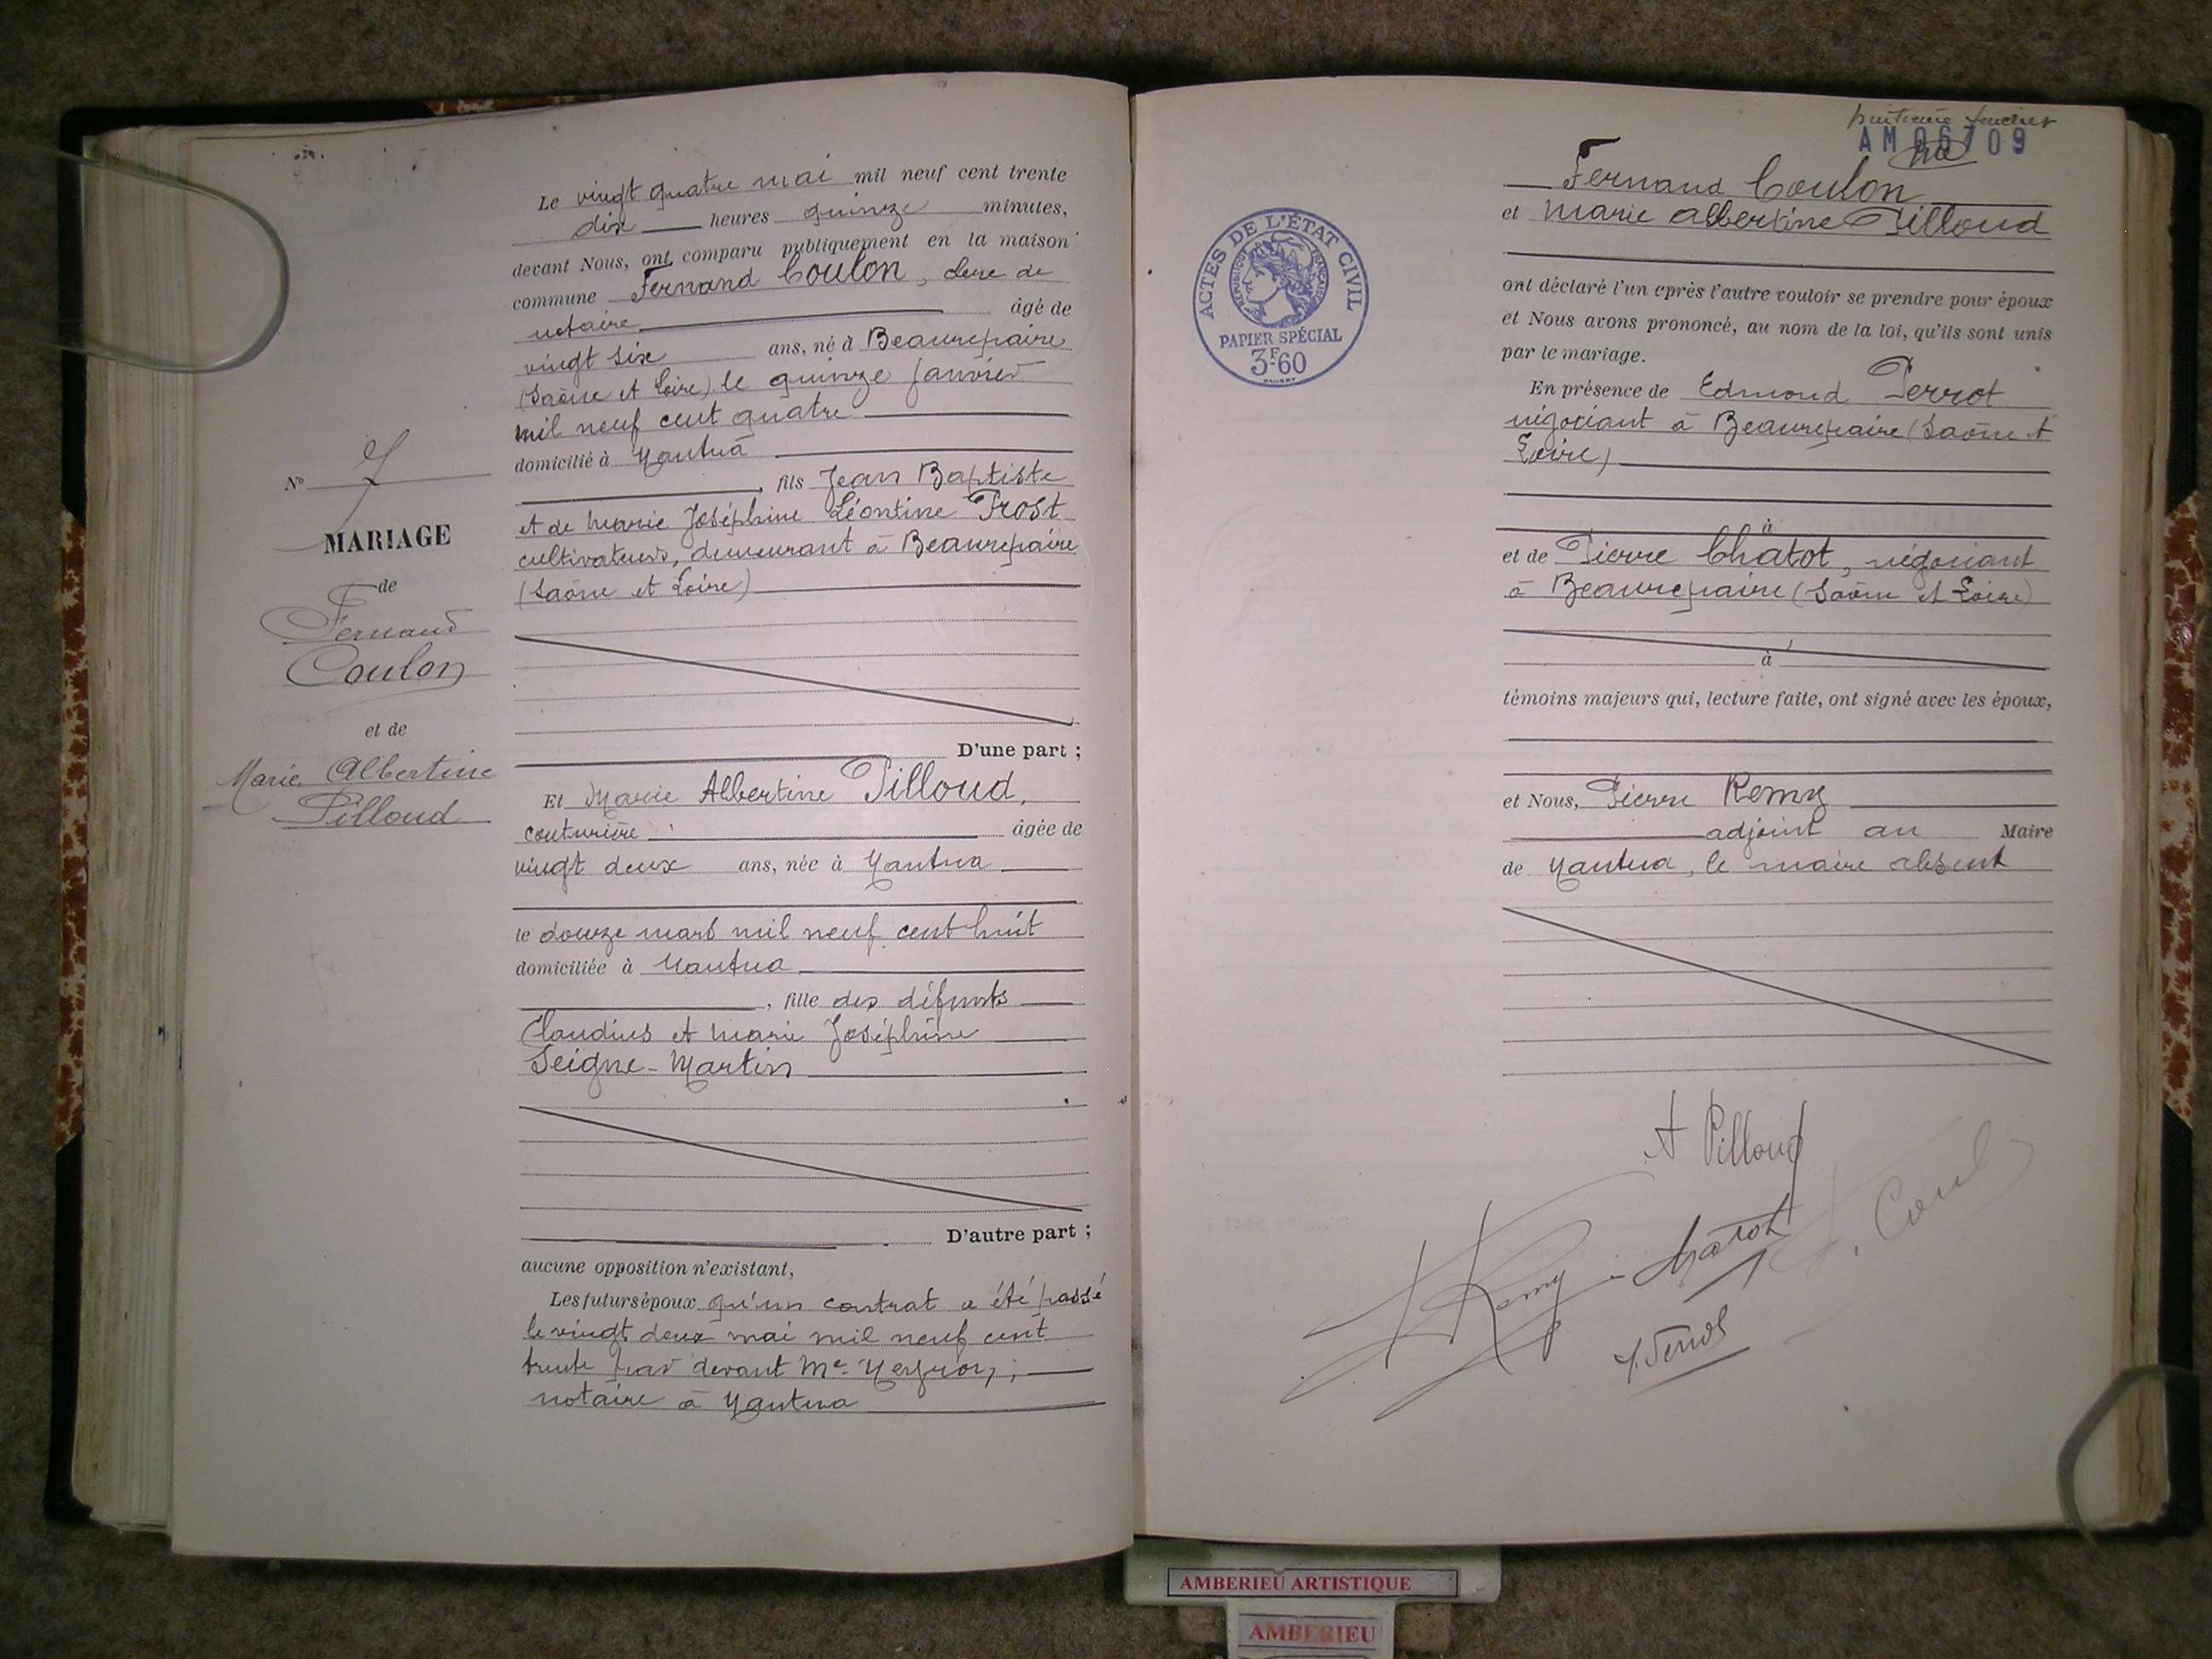 Le vingt quatre mai mil neuf cent trente
dix heures quinze minutes,
devant Nous, ont comparu publiquement en la maison
commune Fernand Coulon, clerc de
notaire âgé de
vingt six ans, né à Beaurepaire
(Saône et Loire) le quinze janvier
mil neuf cent quatre
domicilié à Nantua
, fils Jean Baptiste
et de Marie Joséphine Léontine Prost
cultivateurs, demeurant à Beaurepaire
(Saône et Loire)
D'une part ;
Et Marie Albertine Pilloud,
couturière âgée de
vingt deux ans, née à Nantua
le douze mars mil neuf cent huit
domiciliée à Nantua
, fille des défunts
Claudius et Marie Joséphine
Seigne-Martin
D'autre part ;
aucune opposition n'existant,
Les futurs époux qu'un contrat a été passé
le vingt deux mai mil neuf cent
trente par devant Me
notaire à Nantua
No 7
MARIAGE
de
Fernand
Coulon
et de
Marie Albertine
Pilloud
AM 06709
Fernand Coulon
et Marie Albertine Pilloud
ont déclaré l'un après l'autre vouloir se prendre pour époux
et Nous avons prononcé, au nom de la loi, qu'ils sont unis
par le mariage.
En présence de Edmond Perrot
négociant à Beaurepaire (Saône et
Loire)
à
et de Pierre Chatot, négociant
à Beaurepaire (Saône et Loire)
à
témoins majeurs qui, lecture faite, ont signé avec les époux,
et Nous, Pierre Remy
adjoint au Maire
de Nantua, le maire absent
A Pilloud
Remy
Chatot
ACTES DE L'ÉTAT CIVIL
RÉPUBLIQUE FRANÇAISE
PAPIER SPÉCIAL
3F60
AMBERIEU ARTISTIQUE
AMBERIEU